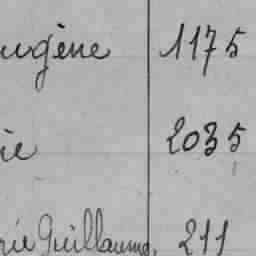 ugène 1175
ie 2035
rie Guillaume, 211